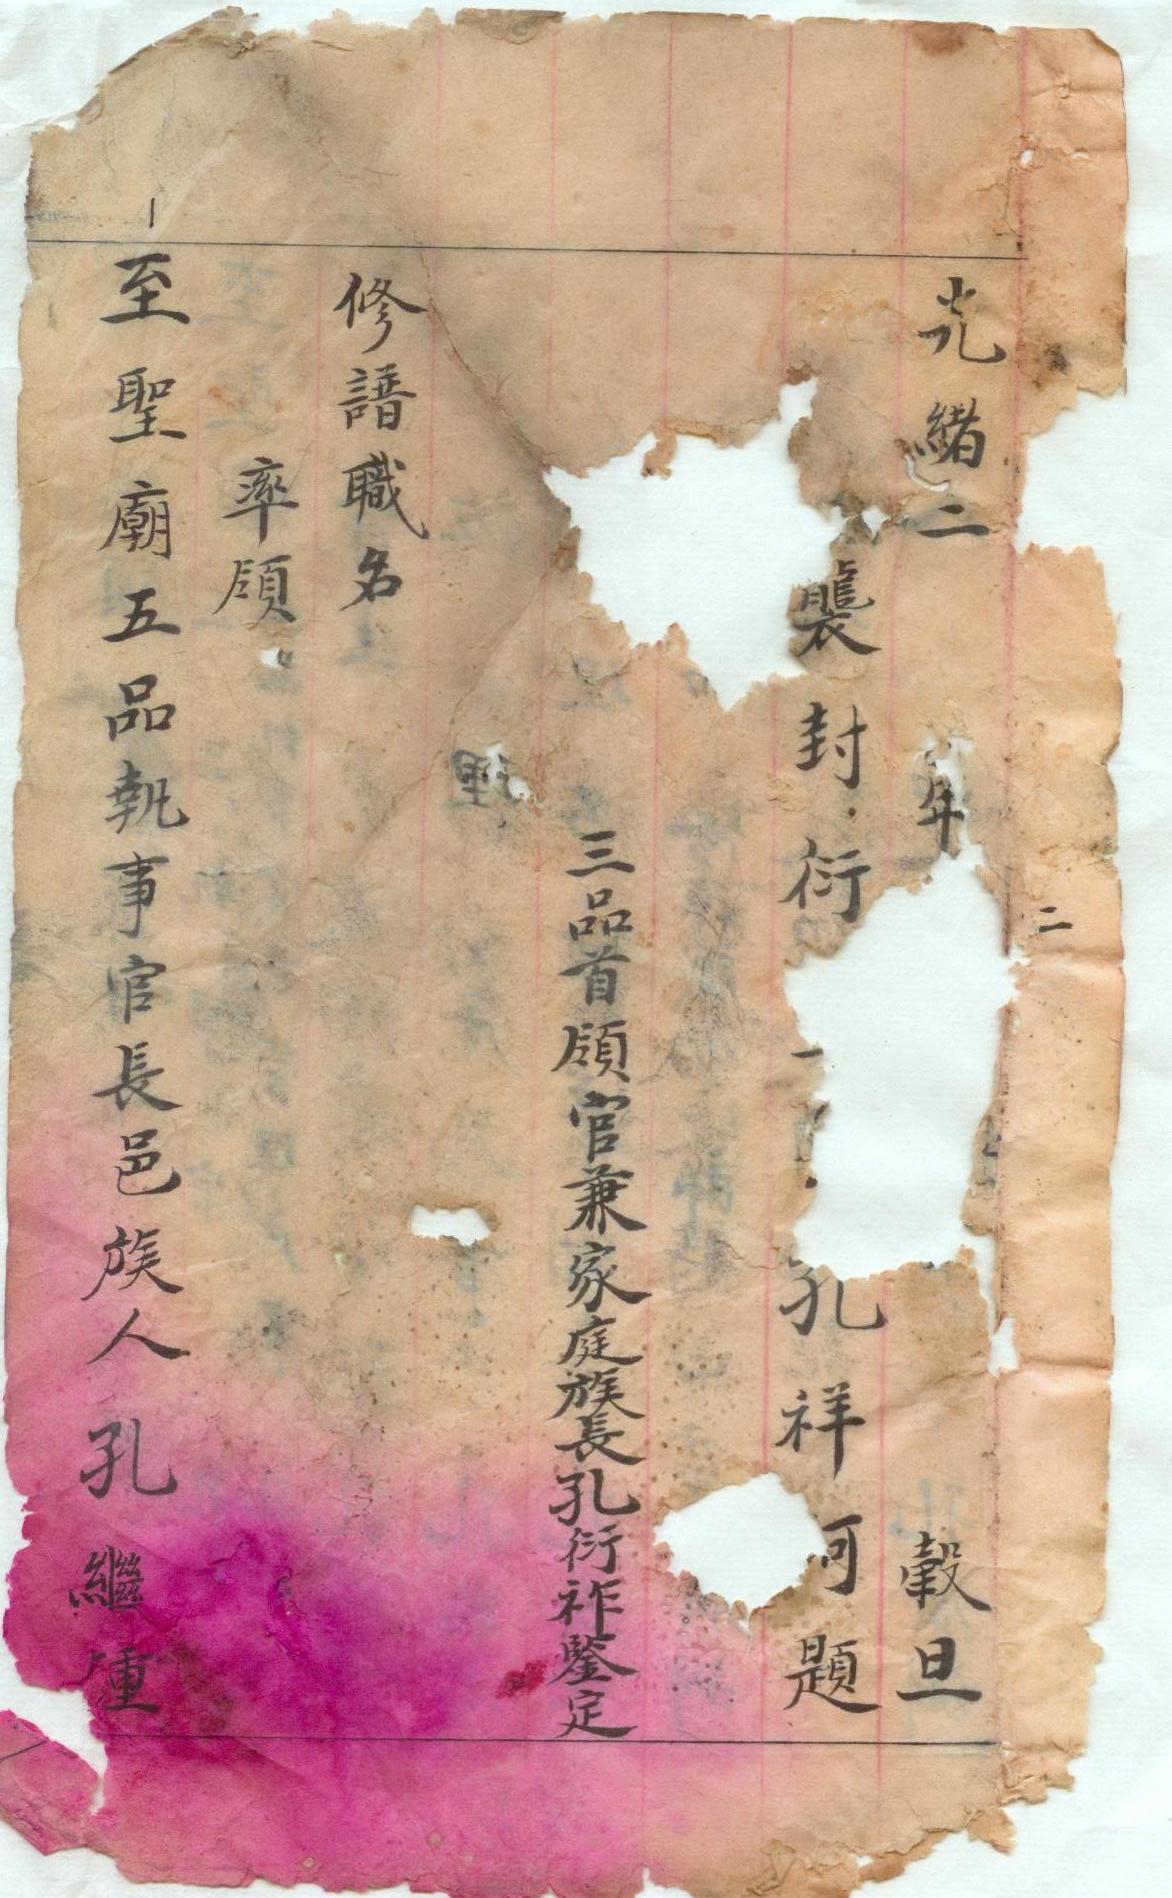 光緒二 年 穀旦
襲封衍 孔祥珂題
三品首領官兼家庭族長孔衍祚鑒定
修譜職名
率領
至聖廟五品執事官長邑族人孔繼重
二